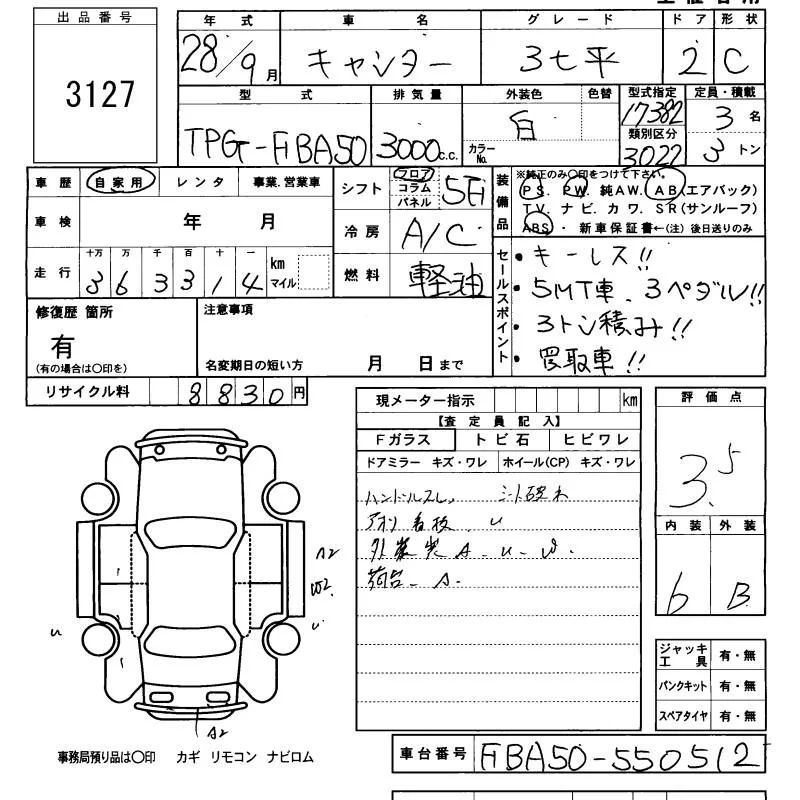 出品番号
3127
年式 車名 グレード ドア 形状
28/9月 キャンター 3七平 2 C
型式 排気量 外装色 色替 型式指定 定員・積載
TPG-FBA50 3000c.c. 白 カラーNo. 17382 3名
類別区分
3022 3トン
車歴 自家用 レンタ 事業.営業車
車検 年 月
走行 十万 万 千 百 十 一 km マイル
3 6 3 3 1 4
シフト フロア コラム パネル 5F
冷房 A/C
燃料 軽油
装備品 ※純正のみ○印をつけて下さい。
PS. PW. 純AW. AB(エアバック)
TV. ナビ. カワ. SR(サンルーフ)
ABS.・新車保証書←(注)後日送りのみ
セールスポイント
・キーレス!!
・5MT車、3ペダル!!
・3トン積み!!
・買取車!!
修復歴 箇所
有
(有の場合は○印を)
注意事項
名変期日の短い方 月 日まで
リサイクル料 8830円
現メーター指示 km
【査定員記入】
Fガラス トビ石 ヒビワレ
ドアミラー キズ・ワレ ホイール(CP) キズ・ワレ
ハンドルスレ シート破れ
アオリ看板. u
外装 A. u. w.
荷台. A.
評価点
3.5
内装 外装
6 B
A2
W2
u
u
A2
ジャッキ工具 有・無
パンクキット 有・無
スペアタイヤ 有・無
事務局預り品は○印 カギ リモコン ナビロム
車台番号 FBA50-550512
5